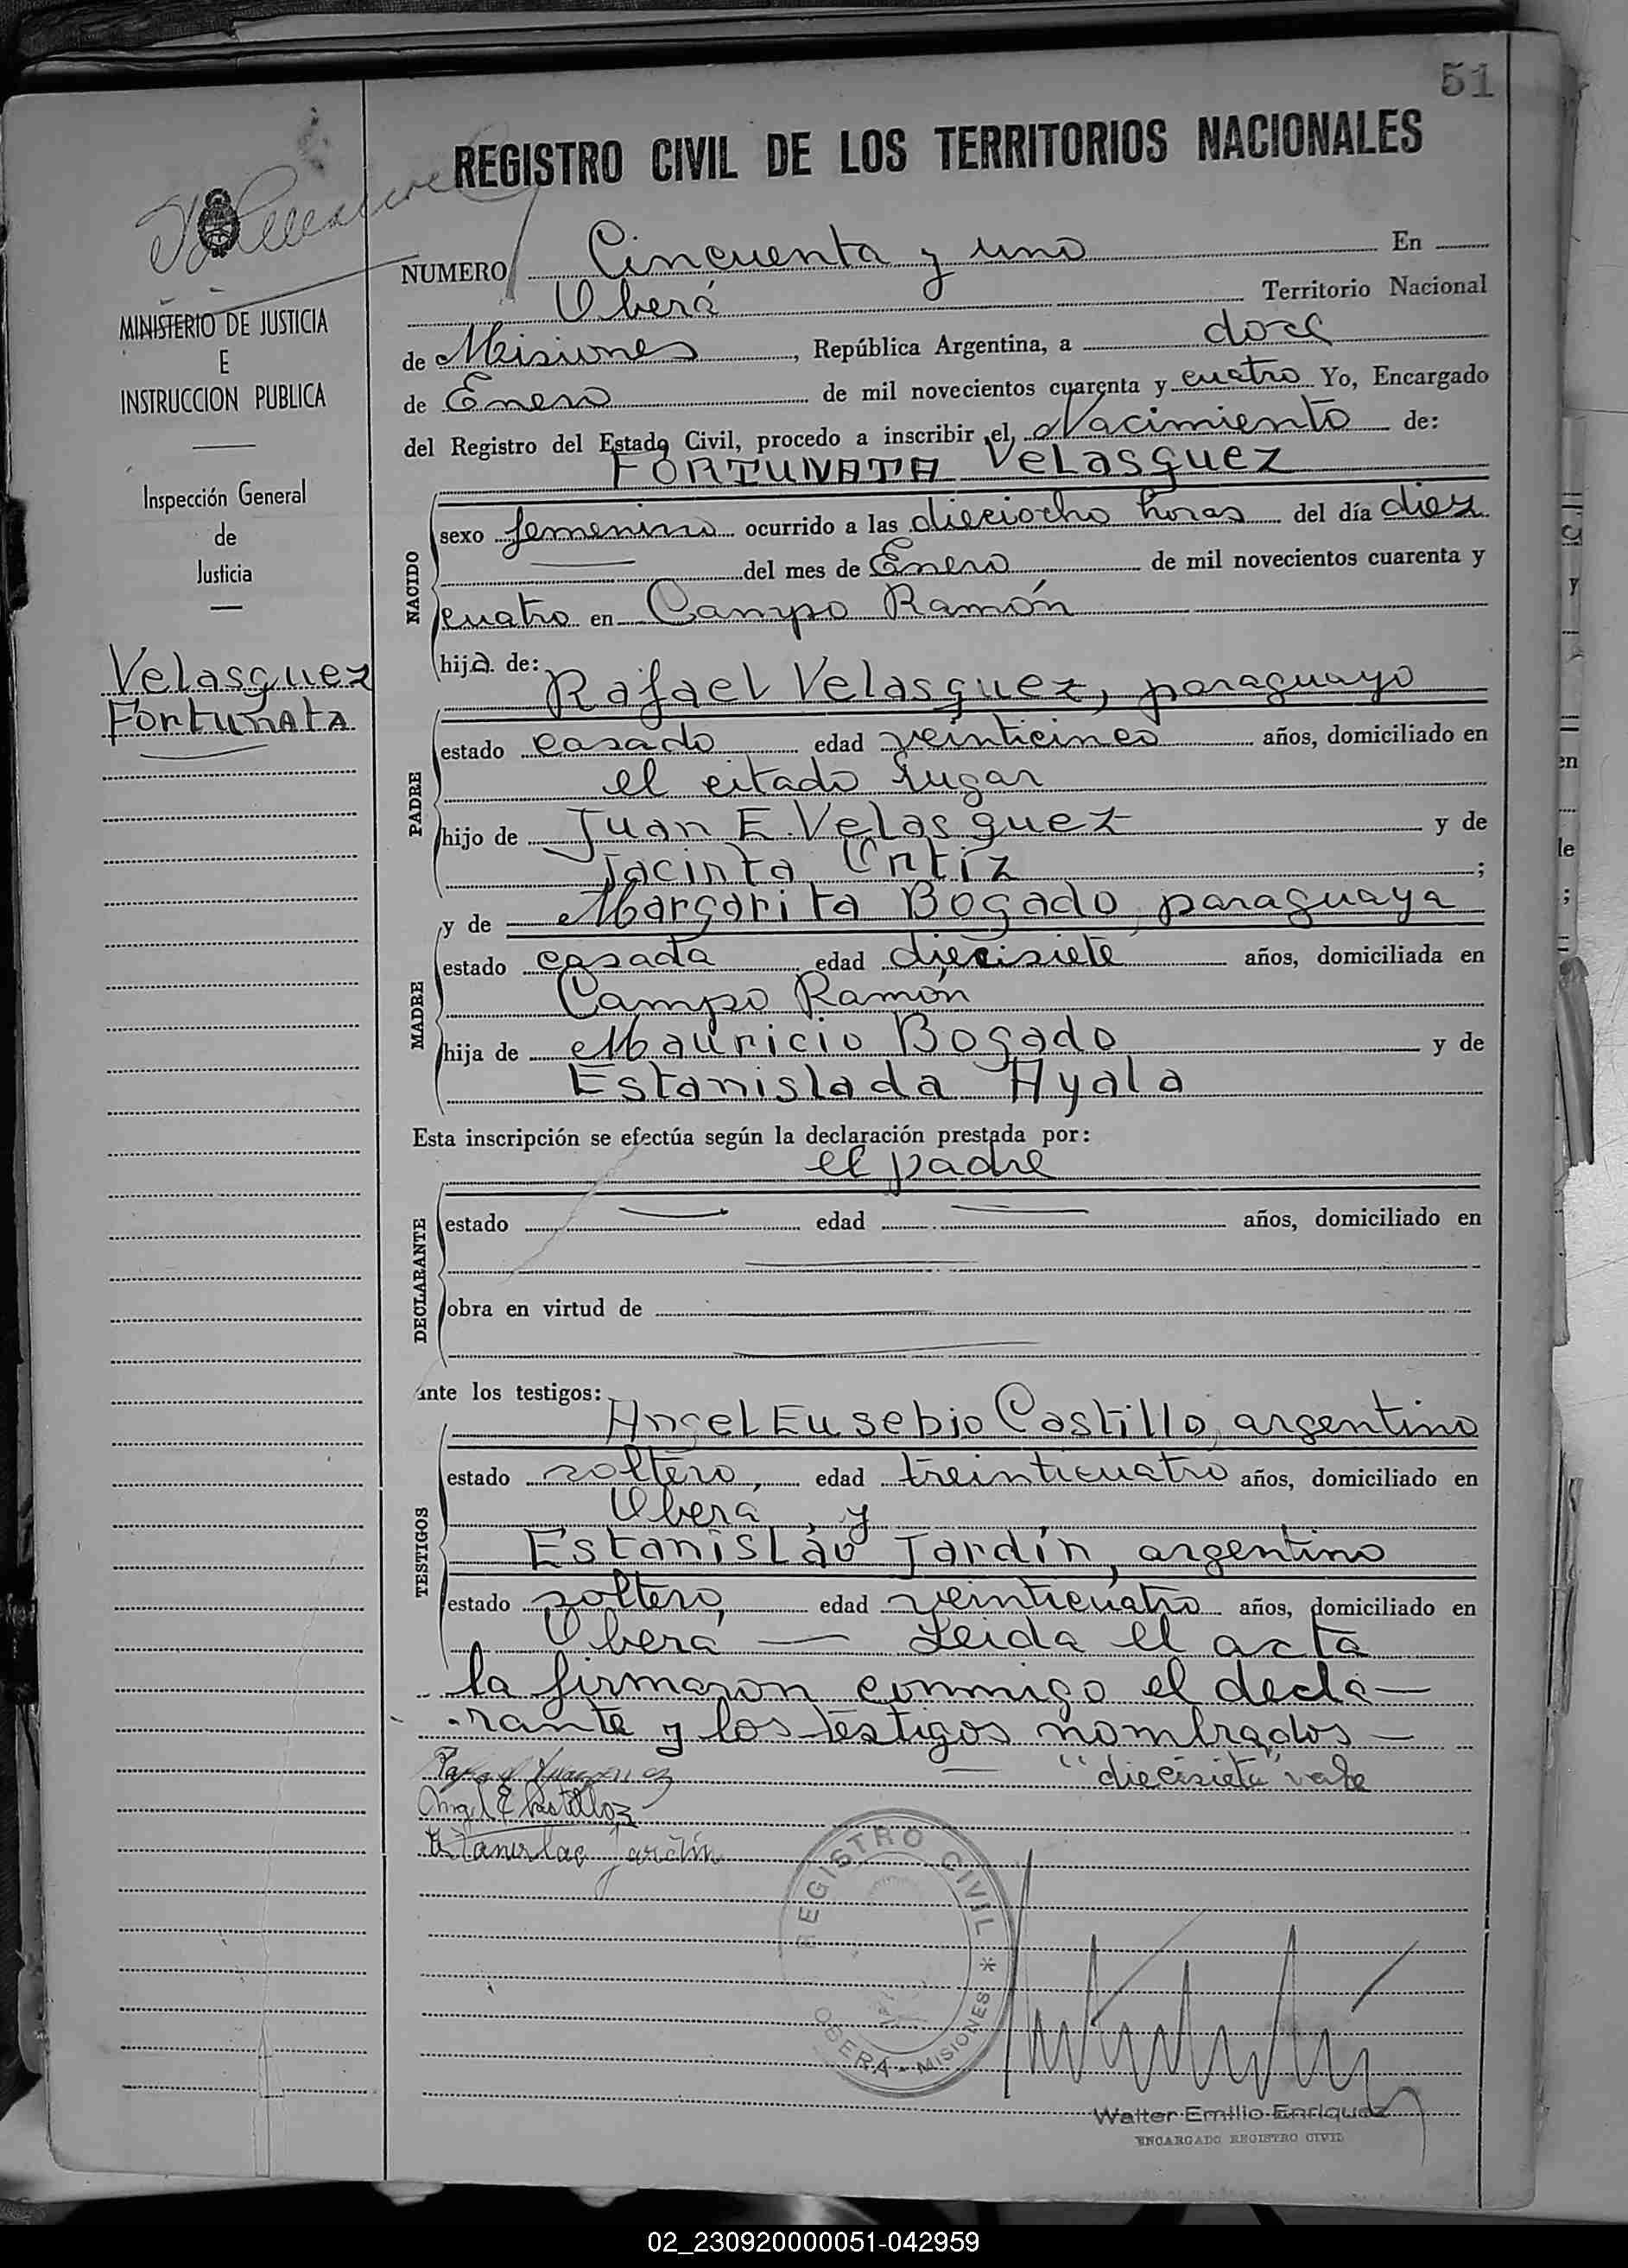 51
REGISTRO CIVIL DE LOS TERRITORIOS NACIONALES
MINISTERIO DE JUSTICIA
E
INSTRUCCION PUBLICA
Inspección General
de
Justicia
Velasquez
Fortunata
NUMERO Cincuenta y uno En
Oberá Territorio Nacional
de Misiones, República Argentina, a doce
de Enero de mil novecientos cuarenta y cuatro Yo, Encargado
del Registro del Estado Civil, procedo a inscribir el Nacimiento de:
FORTUNATA Velasquez
NACIDO
sexo femenino ocurrido a las dieciocho horas del día diez
del mes de Enero de mil novecientos cuarenta y
cuatro en Campo Ramón
hija de:
Rafael Velasquez, paraguayo
PADRE
estado casado edad veinticinco años, domiciliado en
el citado lugar
hijo de Juan E. Velasquez y de
Jacinta Ortiz ;
y de Margarita Bogado, paraguaya
MADRE
estado casada edad diecisiete años, domiciliada en
Campo Ramón
hija de Mauricio Bogado y de
Estanislada Ayala
Esta inscripción se efectúa según la declaración prestada por:
el padre
DECLARANTE
estado edad años, domiciliado en
obra en virtud de
ante los testigos:
Angel Eusebio Castillo, argentino
TESTIGOS
estado soltero, edad treinticuatro años, domiciliado en
Oberá, y
Estanislao Jardín, argentino
estado soltero, edad veinticuatro años, domiciliado en
Oberá — Leida el acta
la firmaron conmigo el decla-
rante y los testigos nombrados —
— "diecisiete" vale
Angel E Castillo
Estanislao Jardín
REGISTRO CIVIL
OBERÁ - MISIONES *
Walter Emilio Enriquez
ENCARGADO REGISTRO CIVIL
02_230920000051-042959